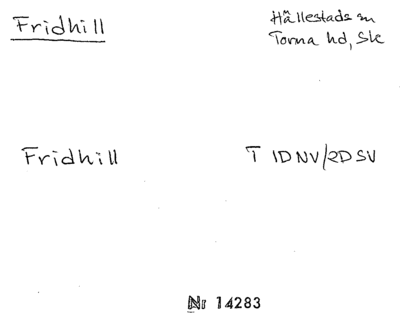 Fridhill
Hällestads sn
Torna hd, Sk
Fridhill
T 1D NV/2D SV
Nr 14283